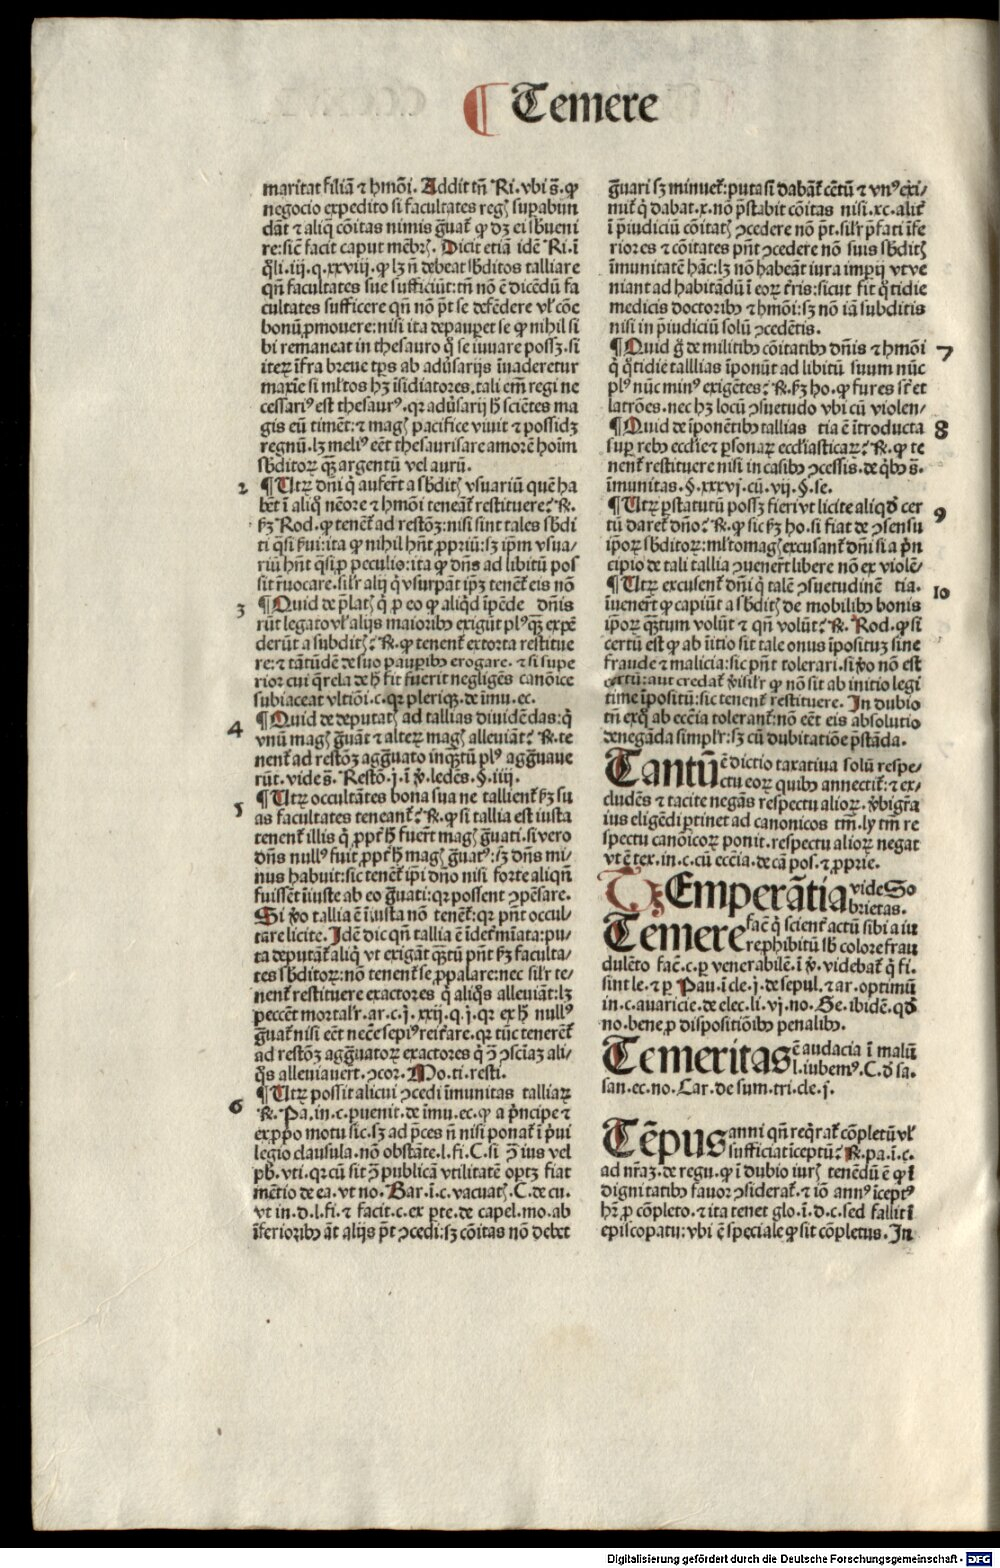 ¶ Temere
maritat filiā ⁊ hmōi. Addit tn̄ Ri. vbi s̄. ꝙ
negocio expedito si facultates regꝭ suꝑabun
dāt ⁊ aliq̄ cōitas nimis gͣuat̄ ꝙ dꝫ ei sb̄ueni
re: sic̄ facit caput mēbrꝭ. Dicit etiā idē Ri. ī
q̄li. iij. q. xxviij. ꝙ lꝫ n̄ debeat sb̄ditos talliare
qn̄ facultates sue sufficiūt: tn̄ nō ē dicēdū fa
cultates sufficere qn̄ nō pn̄t se defēdere vl̓ cōe
bonū ꝓmouere: nisi ita depauꝑet se ꝙ nihil si
bi remaneat in thesauro q̄ se iuuare possꝫ. si
iteꝝ īfra breue tꝑs ab adūsarijs inuaderetur
maxīe si ml̓tos hꝫ īsidiatores. tali em̄ regi ne
cessariꝰ est thesaurꝰ. qꝛ adūsarij h̄ sciētes ma
gis eū timēt: ⁊ magꝭ pacifice viuit ⁊ possidꝫ
regnū. lꝫ meliꝰ eēt thesaurisare amorē hoīm
sb̄ditoꝝ qꝫ̄ argentū vel aurū.
2 ¶ Utꝝ dn̄i q̄ aufer̄t a sb̄ditꝭ vsuariū quē ha
bēt ī aliq̄ nēore ⁊ hmōi teneāt̄ restituere: ℞.
ẜꝫ Rod. ꝙ tenēt̄ ad restōꝫ: nisi sint tales sb̄di
ti q̄si ẜui: ita ꝙ nihil hn̄t ꝓpriū: sꝫ ip̄m vsua/
riū hn̄t q̄si ꝓ peculio: ita ꝙ dn̄s ad libitū pos
sit reuocare. sil̓r alij q̄ vsurpāt ip̄ꝫ tenēt̄ eis nō
3 ¶ Quid de p̄latꝭ q̄ ꝓ eo ꝙ aliqd̓ īpēde dn̄is
rūt legato vl̓ alijs maioribꝰ exigūt plꝰ qꝫ̄ expē
derūt a subditꝭ: ℞. ꝙ tenent̄ extorta restitue
re: ⁊ tātūdē de suo pauꝑibꝰ erogare. ⁊ si supe
rior cui q̄rela de h̄ fit fuerit negligēs canōice
subiaceat vltiōi. c. qꝛ pleriqꝫ. de īmu. ec.
4 ¶ Quid de deputatꝭ ad tallias diuidēdas: q̄
vnū magꝭ gͣuāt ⁊ alteꝝ magꝭ alleuiāt: ℞. te
nent̄ ad restōꝫ aggͣuato inqꝫ̄tū plꝰ aggͣuaue
rūt. vide s̄. Restō. j. ī ꝟ. ledēs. §. iiij.
5 ¶ Utꝝ occultātes bona sua ne tallient̄ ẜꝫ su
as facultates teneant̄: ℞. ꝙ si tallia est iusta
tenent̄ illis q̄ ꝓpt̄ h̄ fuer̄t magꝭ gͣuati. si vero
dn̄s nullꝰ fuit ꝓpt̄ h̄ magꝭ gͣuatꝰ: sꝫ dn̄s mi/
nus habuit: sic tenēt̄ ip̄i dn̄o nisi forte aliqn̄
fuissēt iniuste ab eo gͣuati: qꝛ possent ꝯpēsare.
Si ꝟo tallia ē iīusta nō tenēt̄: qꝛ pn̄t occul/
tare licite. Idē dic qn̄ tallia ē īdet̄mīata: pu/
ta deputāt̄ aliq̄ vt exigāt qꝫ̄tū pn̄t ẜꝫ faculta/
tes sb̄ditoꝝ: nō tenent̄ se ꝓpalare: nec sil̓r te/
nent̄ restituere exactores q̄ aliq̄s alleuiāt: lꝫ
peccēt mortal̓r. ar. c. j. xxij. q. j. qꝛ ex h̄ nullꝰ
gͣuat̄ nisi eēt necē̄ sepiꝰ reit̄are. qꝛ tūc tenerēt̄
ad restōꝫ aggͣuatoꝝ exactores q̄ ꝯ̄ ꝯsciāꝫ ali/
q̄s alleuiauer̄t. ꝯcor. Mo. ti. resti.
6 ¶ Utꝝ possit alicui ꝯcedi īmunitas talliaꝝ
℞. Pa. in. c. ꝑuenit. de īmu. ec. ꝙ a pͥncipe ⁊
ex ꝓpͥo motu sic. sꝫ ad p̄ces n̄ nisi ponat̄ ī pͥui
legio clausula. nō obstāte. l. fi. C. si ꝯ̄ ius vel
pb̓. vti. qꝛ cū sit ꝯ̄ publicā vtilitatē optꝫ fiat
mētio de ea. vt no. Bar. ī. c. vacuatꝭ. C. de cu.
vt in. d. l. fi. ⁊ facit. c. ex ꝑte. de capel. mo. ab
īferioribꝰ āt alijs pn̄t ꝯcedi: sꝫ cōitas nō debet
gͣuari sꝫ minuet̄: puta si dabāt̄ cētū ⁊ vnꝰ exi/
mit̄ q̄ dabat. x. nō p̄stabit cōitas nisi. xc. alit̄
ī p̄iudiciū cōitatꝭ ꝯcedere nō pn̄t. sil̓r p̄fati īfe
riores ⁊ cōitates pn̄t ꝯcedere nō suis sb̄ditꝭ
īmunitatē hāc: lꝫ nō habeāt iura imperij vt ve
niant ad habitādū ī eoꝝ t̄ris: sicut fit q̄tidie
medicis doctoribꝰ ⁊ hmōi: sꝫ nō iā subditis
nisi in p̄iudiciū solū ꝯcedētis.
7 ¶ Quid gͦ de militibꝰ cōitatibꝰ dn̄is ⁊ hmōi
q̄ q̄tidie talllias īponūt ad libitū suum nūc
plꝰ nūc minꝰ exigētes: ℞. ẜꝫ ho. ꝙ fures st̄ et
latrōes. nec hꝫ locū ꝯsuetudo vbi cū violen/
8 ¶ Quid de īponētibꝰ tallias tia ē ītroducta
suꝑ rebꝰ eccl̓ie ⁊ ꝑsonaꝝ eccl̓iasticaꝝ: ℞. ꝙ te
nent̄ restituere nisi in casibꝰ ꝯcessis. de q̄bꝰ s̄.
īmunitas. §. xxxvj. cū. vij. §. se.
9 ¶ Utꝝ ꝑ statutū possꝫ fieri vt licite aliqd̓ cer
tū daret̄ dn̄o: ℞. ꝙ sic ẜꝫ ho. si fiat de ꝯsensu
ip̄oꝝ sb̄ditoꝝ: ml̓tomagꝭ excusant̄ dn̄i si a pͥn
cipio de tali tallia ꝯuener̄t libere nō ex violē/
10 ¶ Utꝝ excusent̄ dn̄i q̄ talē ꝯsuetudinē tia.
īuener̄t ꝙ capiūt a sb̄ditꝭ de mobilibꝰ bonis
ip̄oꝝ qꝫ̄tum volūt ⁊ qn̄ volūt: ℞. Rod. ꝙ si
certū est ꝙ ab īitio sit tale onus īpositū sine
fraude ⁊ malicia: sic pn̄t tolerari. si ꝟo nō est
certū: aut credat̄ ꝟisil̓r ꝙ nō sit ab initio legi
time īpositū: sic tenent̄ restituere. In dubio
tn̄ ex quo ab eccīa tolerant̄: nō eēt eis absolutio
denegāda simpl̓r: sꝫ cū dubitatiōe p̄stāda.
Tantū ē dictio taxatiua solū respe/
ctu eoꝝ quibꝰ annectit̄: ⁊ ex/
cludēs ⁊ tacite negās respectu alioꝝ. ꝟbigr̄a
ius eligēdi ꝑtinet ad canonicos tm̄. ly tm̄ re
spectu canōicoꝝ ponit. respectu alioꝝ negat
vt ē tex. in. c. cū eccīa. de cā pos. ⁊ ꝓprie.
TEmperātia vide So
brietas.
Temere facē̄ q̄ scient̄ actū sibi a iu
re ꝓhibitū sb̄ colore frau
dulēto facē̄. c. ꝑ venerabilē. ī ꝟ. videbat̄ q̄ fi.
sint le. ⁊ ꝑ Pau. ī cle. j. de sepul. ⁊ ar. optimū
in. c. auaricie. de elec. li. vj. no. Ge. ibidē. qd̓
no. bene ꝓ dispositiōibꝰ penalibꝰ.
Temeritas ē audacia ī malū
l. iubemꝰ. C. d̓ sa.
san. ec. no. Car. de sum. tri. cle. j.
Tēpus anni qn̄ reqͥrat̄ cōpletū vl̓
sufficiat īceptū: ℞. pa. ī. c.
ad nr̄aꝫ. de regu. ꝙ ī dubio iurꝭ tenēdū ē ꝙ ī
dignitatibꝰ fauor ꝯsiderat̄. ⁊ iō annꝰ īceptꝰ
hr̄ ꝓ cōpleto. ⁊ ita tenet glo. ī. d. c. sed fallit ī
episcopatu: vbi ē speciale ꝙ sit cōpletus. In
Digitalisierung gefördert durch die Deutsche Forschungsgemeinschaft - DFG